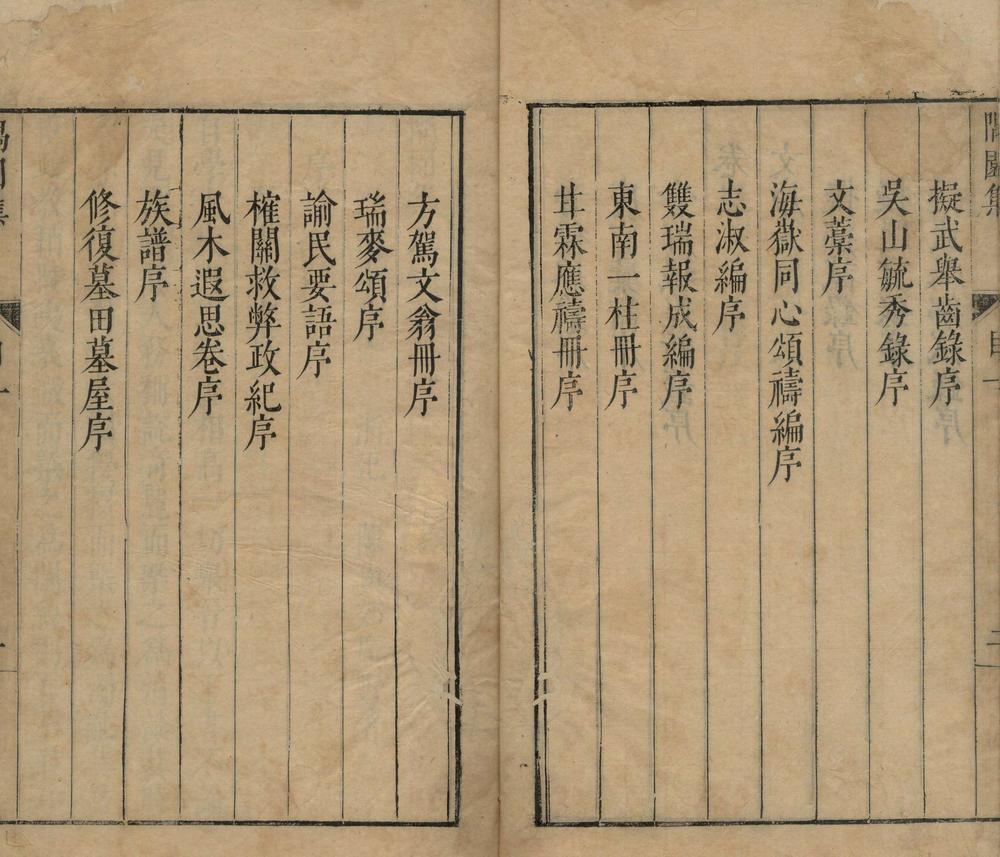 擬武舉齒錄序
吳山毓秀錄序
文藁序
海嶽同心頌禱編序
志淑編序
雙瑞報成編序
東南一柱冊序
甘霖應禱冊序
方駕文翁冊序
瑞麥頌序
諭民要語序
榷關救弊政紀序
風木遐思卷序
族譜序
修復墓田墓屋序